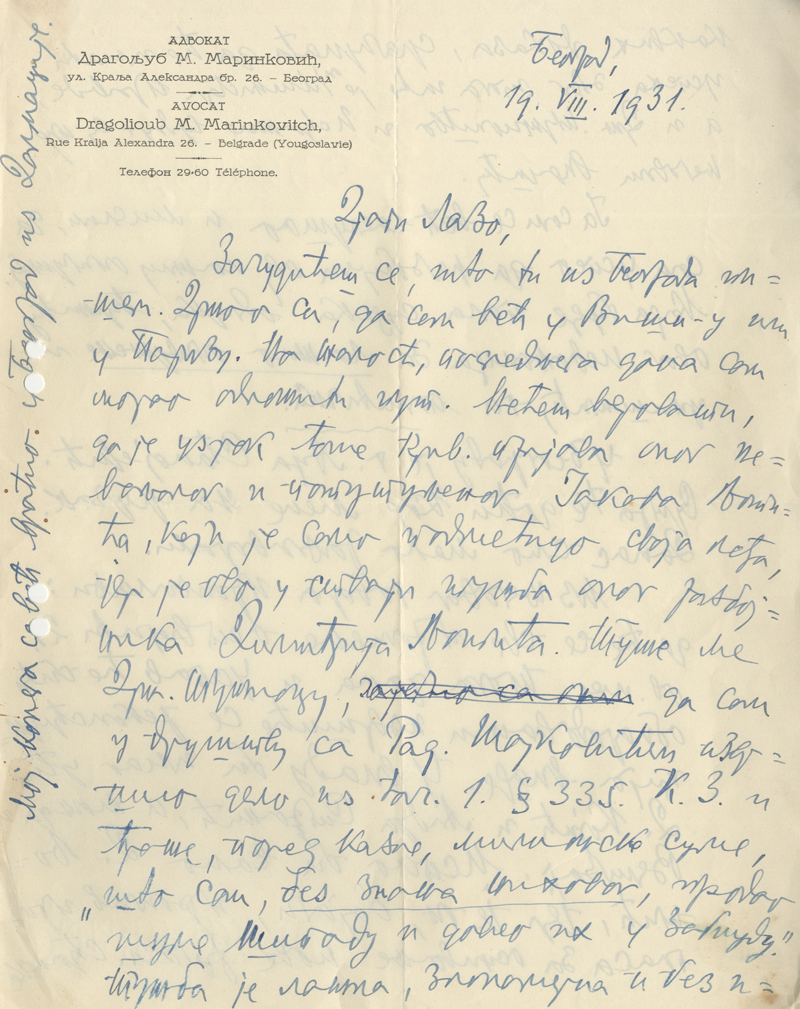 АДВОКАТ
Драгољуб М. Маринковић,
ул. Краља Александра бр. 26. – Београд
AVOCAT
Dragolioub M. Marinkovitch,
Rue Kralja Alexandra 26. – Belgrade (Yougoslavie)
Телефон 29-60 Téléphone.
Београд,
19. VIII. 1931.
Драги Лазо,
Зачудићеш се, што ти из Београда пи=
шем. Држао си, да сам већ у Виши-у или
у Паризу. На жалост, последњега дана сам
морао одложити пут. Нећеш веровати,
да је узрок томе крив. пријава оног не=
ваљалог и Јакова
ћа, који је само подметнуо своја леђа,
јер је ово у ствари тужба оног разбој=
ника Димитрија Тужи ме
Држ. Тужиоцу, да сам
у друштву са Рад. извр=
шио дело из тач. 1. § 335. К. З. и
тражи, поред казне, милионске суме,
„што сам, без знања њиховог, продао
шуме Шипаду и довео их у заблуду.“
Тужба је лажна, злонамерна и без и=